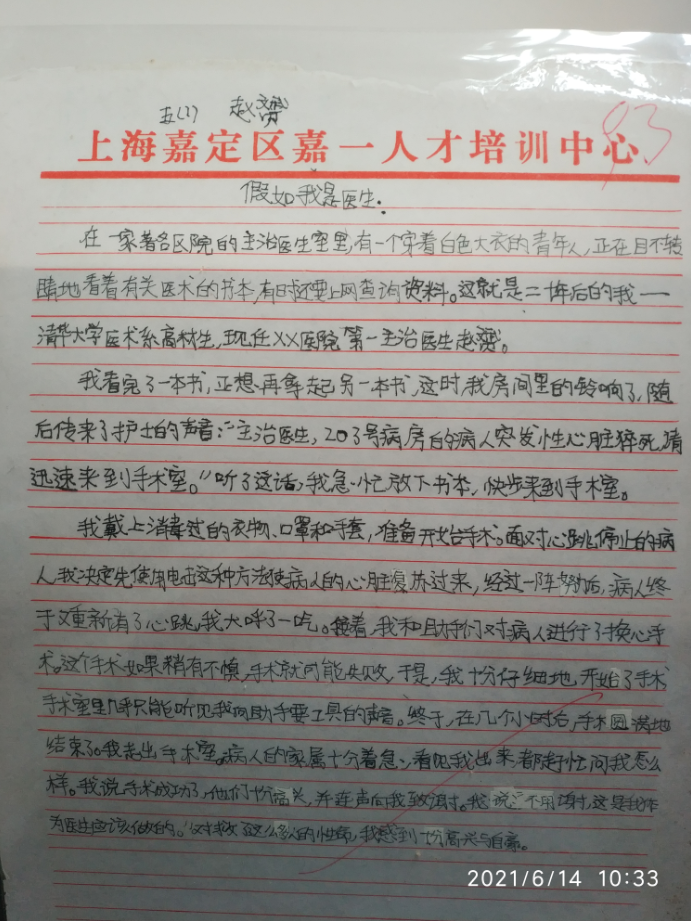 五(1) 赵赟
93
上海嘉定区嘉一人才培训中心
假如我是医生.
在一家著名医院的主治医生室里,有一个穿着白色大衣的青年人,正在目不转
睛地看着有关医术的书本,有时还要上网查询资料。这就是二十年后的我——
清华大学医术系高材生,现任XX医院第一主治医生赵赟。
我看完了一本书,正想再拿起另一本书,这时,我房间里的铃响了,随
后传来了护士的声音:“主治医生,203号病房的病人突发性心脏猝死,请
迅速来到手术室。”听了这话,我急忙放下书本,快步来到手术室。
我戴上消毒过的衣物、口罩和手套,准备开始手术。面对心跳停止的病
人,我决定先使用电击这种方法使病人的心脏复苏过来,经过一阵努力后,病人终
于又重新有了心跳,我大呼了一气。接着,我和助手们对病人进行了换心手
术。这个手术如果稍有不慎,手术就可能失败,于是,我十分仔细地,开始了手术
手术室里几乎只能听见我向助手要工具的声音。终于,在几个小时后,手术圆满地
结束了。我走出手术室。病人的家属十分着急,看见我出来,都赶忙问我怎么
样。我说手术成功了,他们十分高兴,并连声向我致谢。我说:不用谢,这是我作
为医生应该做的。”对救了这么多人的性命,我感到十分高兴与自豪。
2021/6/14 10:33